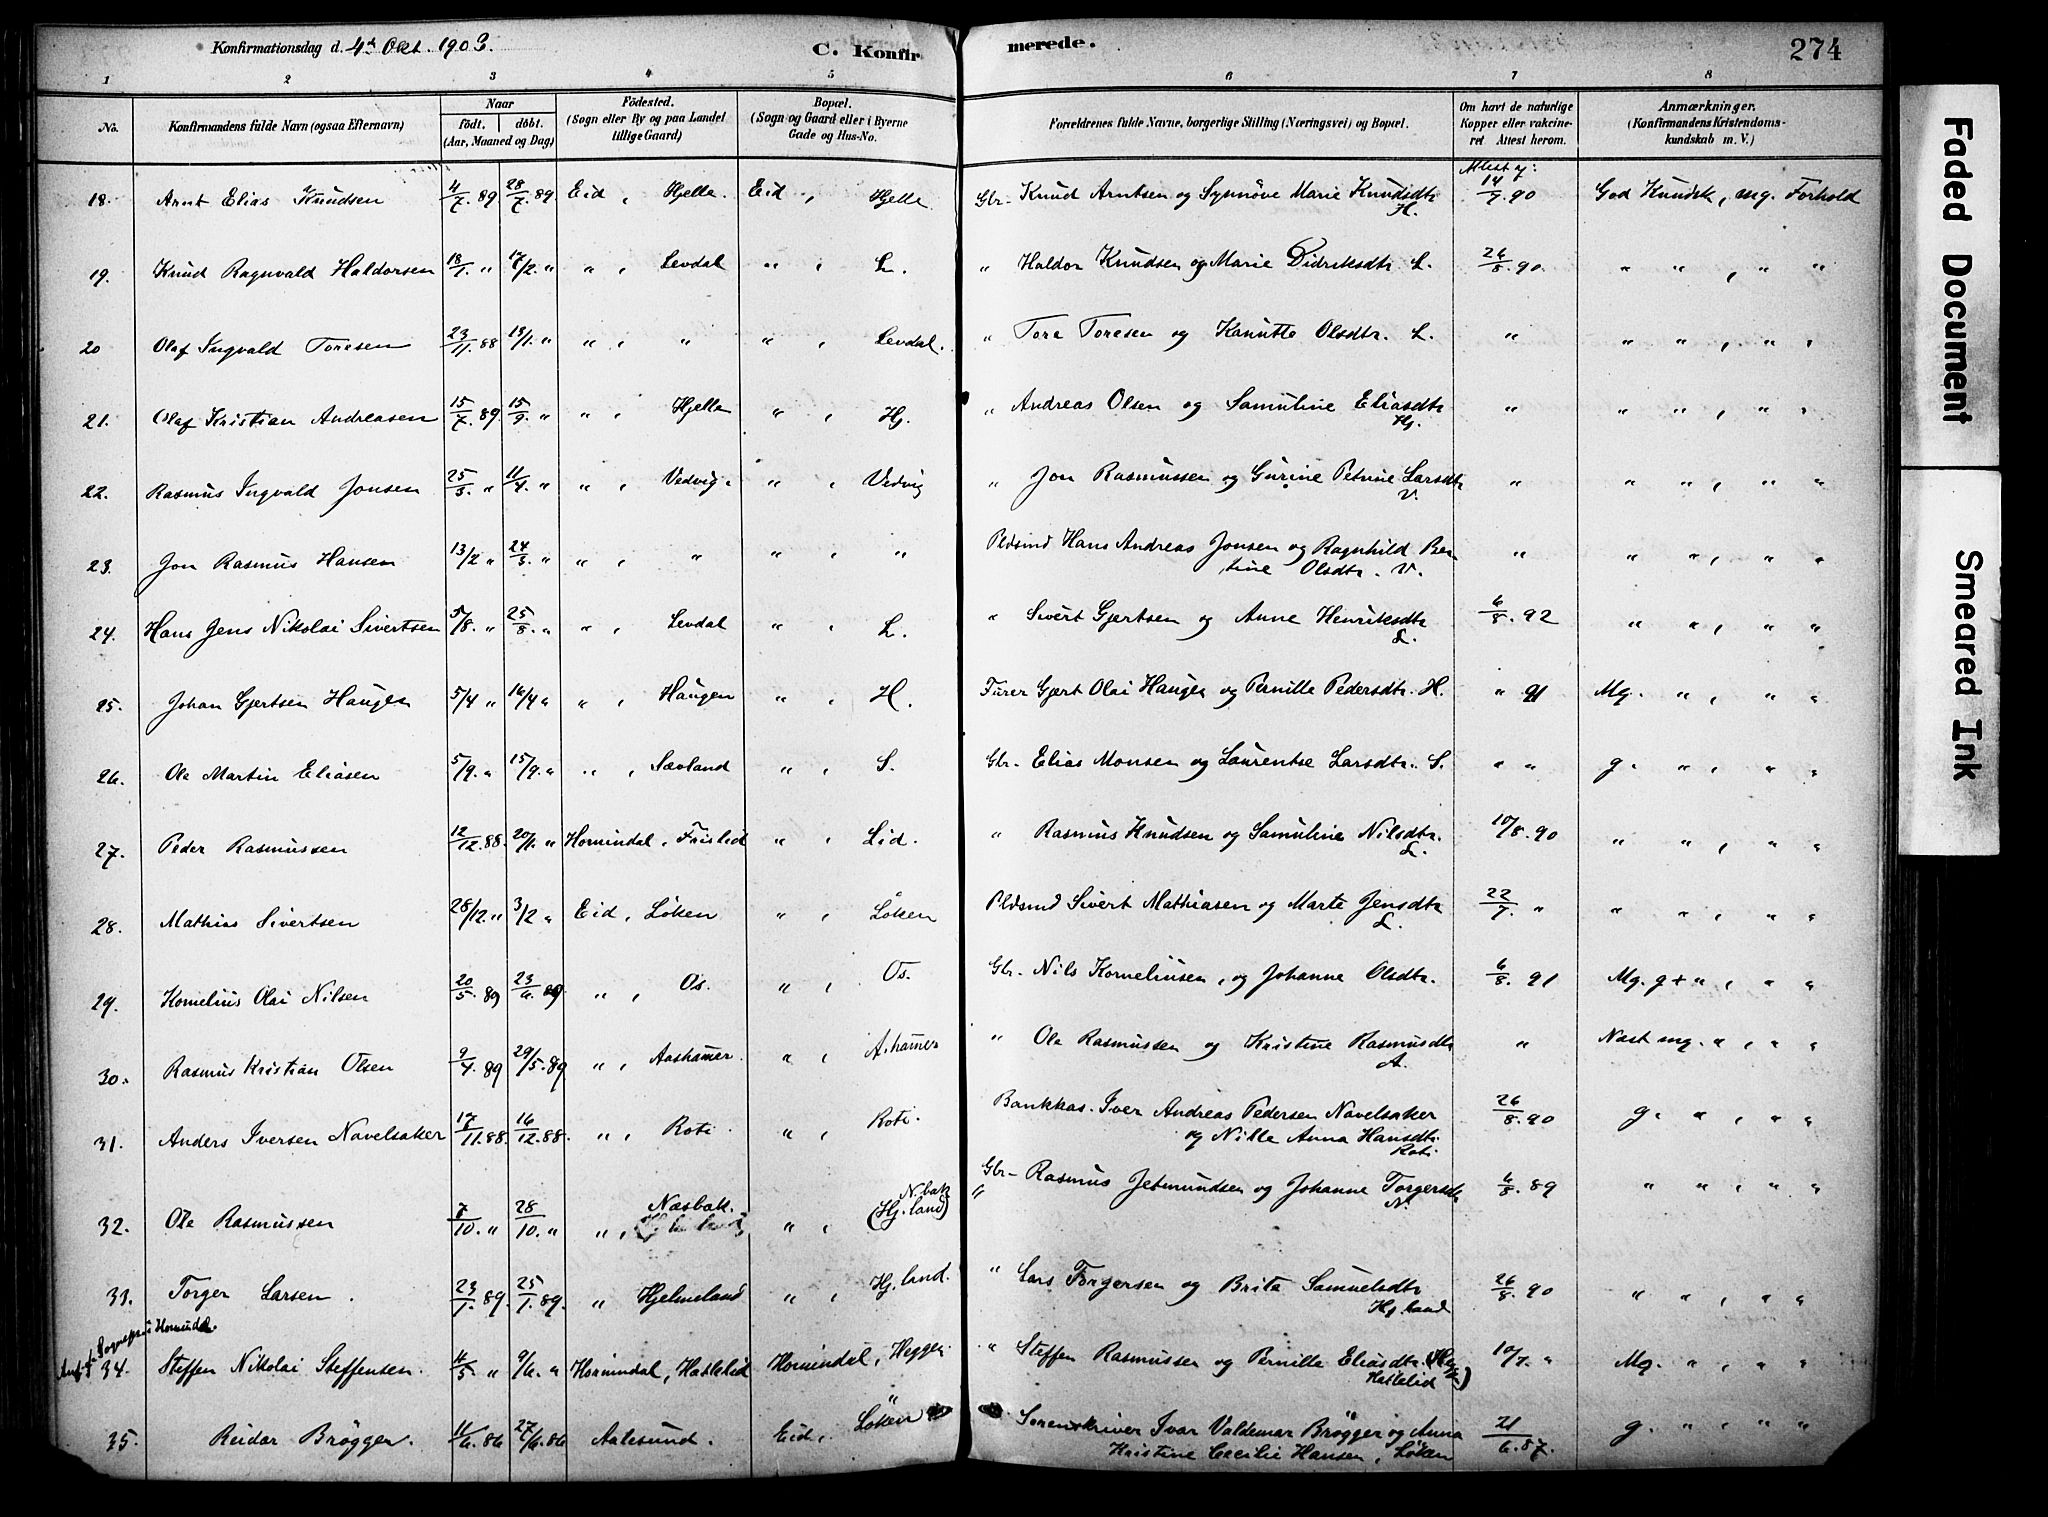 Konfirmationsdag d. 4de Okt. 1903. C. Konfirmerede. 274
1 2 3 4 5 6 7 8
No. Konfirmandens fulde Navn (ogsaa Efternavn) Naar födt. döbt. (Aar, Maaned og Dag) Födested. (Sogn eller By og paa Landet tillige Gaard) Bopæl. (Sogn og Gaard eller i Byerne Gade og Hus-No. Forældrenes fulde Navne, borgerlige Stilling (Næringsvei) og Bopæl. Om havt de naturlige Kopper eller vakcineret. Attest herom. Anmærkninger. (Konfirmandens Kristendomskundskab m. V.)
18. Arnt Elias Knudsen 4/7. 89 28/7. 89 Eid, Hjelle. Eid, Hjelle Gbr. Knud Arntsen og Synnöve Marie Knudsdtr H. Attest af: 14/7. 90 God Kundsk, mg. Forhold
19. Knud Ragnvald Haldorsen 18/1. " 17/2. " " , Levdal " , L. " Haldor Knudsen og Marie Didriksdtr L. 26/8. 90. " " , " "
20 Olaf Ingvald Toresen 23/11. 88 13/1. " " , " " , Levdal. " Tore Toresen og Kanutte Olsdtr. L. " " " , " "
21. Olaf Kristian Andreasen 15/7. 89 15/9. " " , Hjelle " , Hj. " Andreas Olsen og Samuline Eliasdtr Hj. " " " , " "
22. Rasmus Ingvald Jonsen 25/3. " 11/4. " " , Vedvig. " , Vedvig " Jon Rasmussen og Gurine Petrine Larsdtr V. " " " , " "
23. Jon Rasmus Hansen 13/2 " 24/3. " " , " " , " Pldsmd Hans Andreas Jonsen og Ragnhild Bertine Olsdtr. V. " " " , " "
24. Hans Jens Nikolai Sivertsen 5/8. " 25/8. " " , Levdal " , L. " Sivert Gjertsen og Anne Henriksdtr L. 6/8. 92 " " , " "
25. Johan Gjertsen Haugen 5/4 " 16/4 " " , Haugen " , H. Furer Gjert Olai Haugen og Pernille Pedersdtr. H. " 91 Mg. " , " "
26. Ole Martin Eliasen 5/9. " 15/9. " " , Sævland " , S. Gbr. Elias Monsen og Laurentse Larsdtr. S. " " g. " , " "
27. Peder Rasmussen 12/12. 88. 20/1. " Hornindal, Frislid " , Lid. " Rasmus Knudsen og Samuline Nilsdtr. L. 10/8. 90 " " , " "
28. Mathias Sivertsen 28/12. " 3/2 " Eid, Løken " , Løken Pldsmd Sivert Mathiasen og Marte Jensdtr L. 22/7. " " " , " "
29. Kornelius Olai Nilsen 20/5. 89 23/6. 89 " , Os. " , Os. Gbr. Nils Korneliusen, og Johanne Olsdtr. 6/8. 91 Mg. g + " , " "
30. Rasmus Kristian Olsen 9/4. 89 29/5. 89 " , Aashamer. " , Ashamer " Ole Rasmussen og Kristine Rasmusdtr A. " Næst mg. " , " "
31. Anders Iversen Navelsaker 17/11. 88. 16/12. 88. " , Roti. " , Roti. Bankkas. Iver Andreas Pedersen Navelsaker og Nille Anna Hansdtr. Roti 26/8. 90 g. " , " "
32. Ole Rasmussen 7/10. " 28/10. " " , Næsbak. " , N.bak (Hj.land) Gbr. " Rasmus Jetmundsen og Johanne Torgersdtr N. 6/8. 89 " " , " "
33. Torger Larsen. 23/1. 89. 25/1. 89. " Hjelmeland " , Hj. land. " Lars Torgersen og Brita Samuelsdtr Hj. land 26/8. 90 " " , " "
34. Steffen Nikolai Steffensen. 4/5 " 9/6. " Hornindal, Haslelid Hornindal, Heggen " Steffen Rasmussen og Pernille Eliasdtr. Haslelid 10/7. " Mg. " , " "
35. Reidar Brøgger. 11/6. 86 27/6. 86 Aalesund. Eid, Løken Sorenskriver Ivar Valdemar Brøgger og Anna Kristine Cecilie Hansen, Løken 21/6. 87. g. " , " "
Faded Document
Smeared Ink